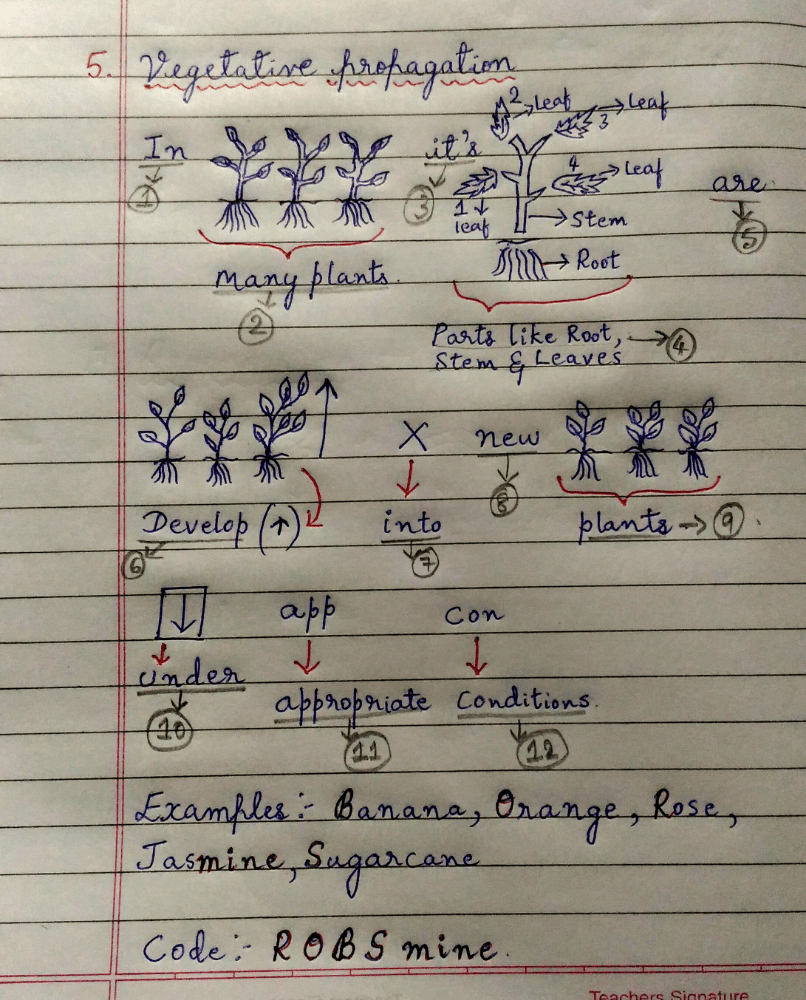 5. Vegetative propagation
2 → Leaf → Leaf
3
In it's 4 → Leaf are
1 3 1 leaf → Stem 5
many plants. → Root
2
Parts like Root, → 4
Stem & Leaves
X new
8
Develop (↑) into plants → 9.
6 7
↓ app Con
under
appropriate Conditions.
10 11 12
Examples:- Banana, Orange, Rose,
Jasmine, Sugarcane
Code:- ROBS mine.
Teachers Signature